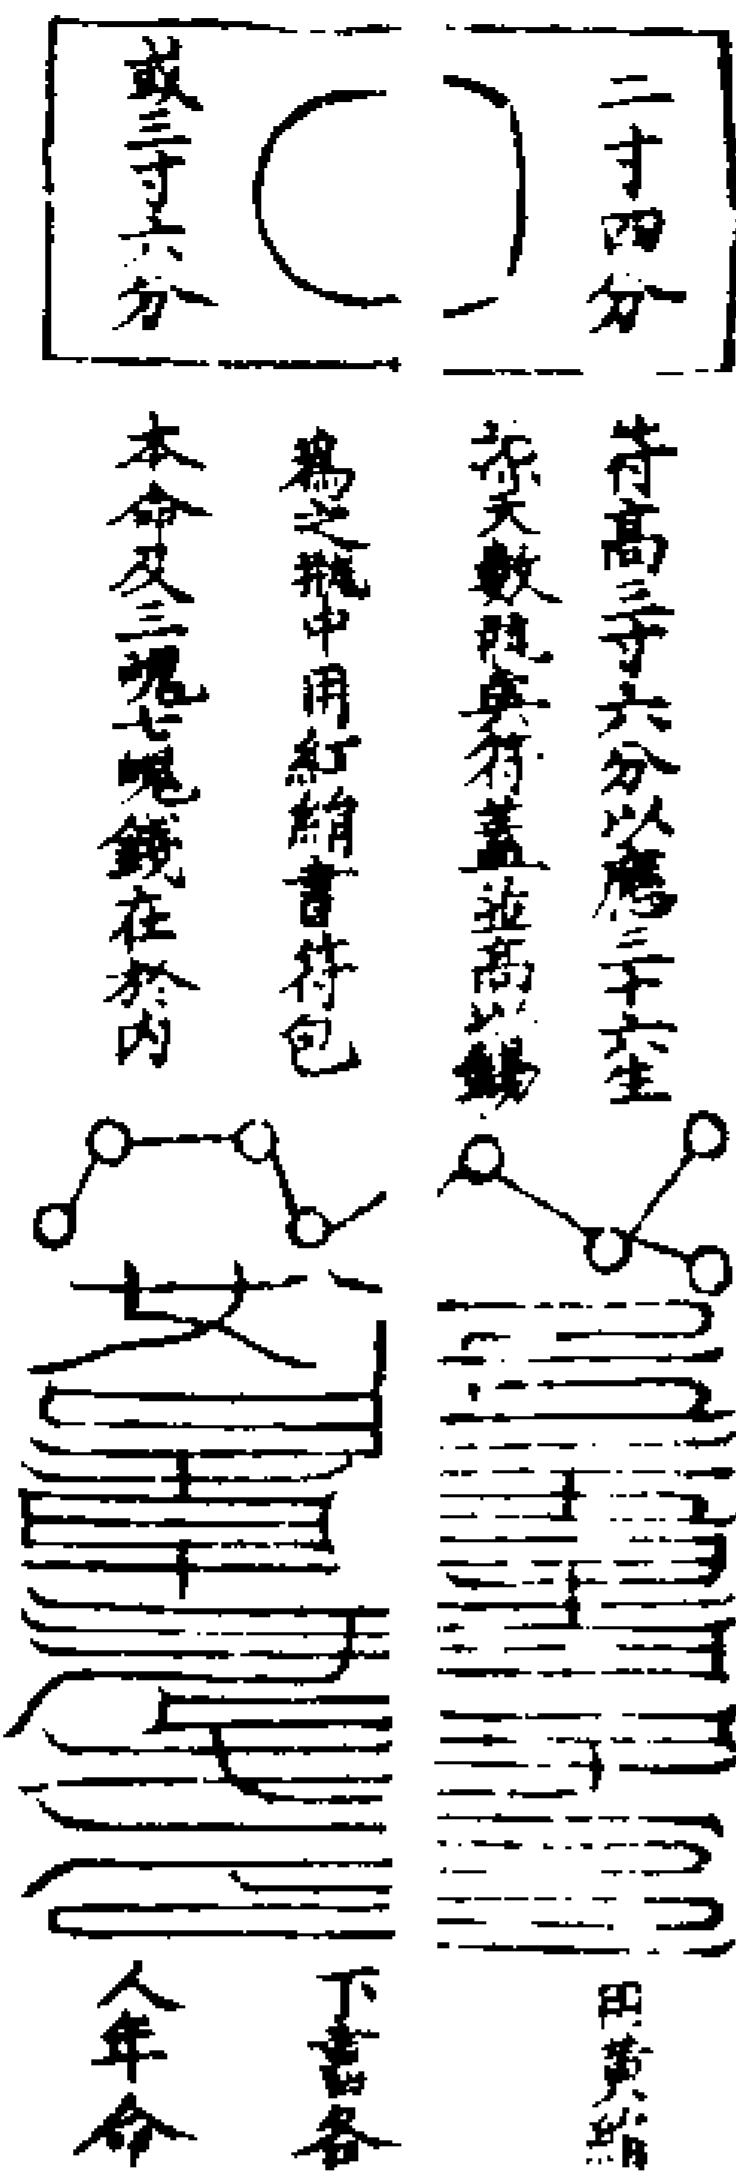 二寸四分
或三寸六分
符高三寸六分以應三十六生
天數既與符蓋並高以錫
為之瓶中用紅絹書符包
本命及三魂七魄錢在於内
用黄絹
下書各
人年命